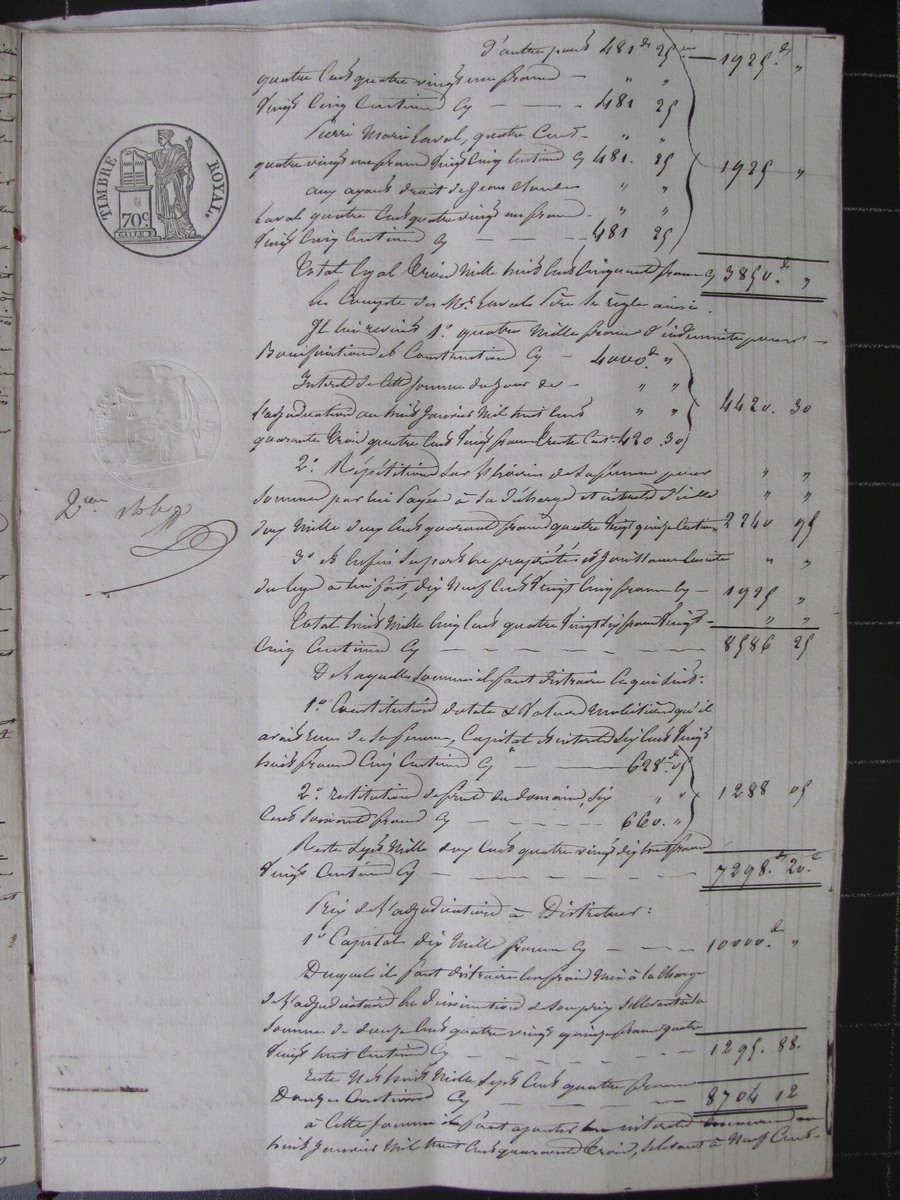 D'autre part 481 fr 25 — 1925 fr "
quatre cents quatre vingt un francs — " "
Vingt Cinq Centimes Cy — — — 481 25
Pierre Marie Laval, quatre Cents — " "
quatre vingt un francs Vingt Cinq Centimes Cy 481. 25 1925 "
aux ayants droit de Jean Claude " "
Laval quatre Cents quatre vingt un francs — " "
Vingt Cinq Centimes Cy — — — 481 25
Total égal Trois Mille huit Cents Cinquante francs Cy 3850. fr "
Le Compte de Mr Laval Père se règle ainsi.
Il lui revient 1o. quatre Mille francs d'indemnité pour
Constructions Cy — 4000 fr "
Intérêt de cette somme du jour de — " "
l'adjudication au huit Janvier Mil huit Cent " " 4420. 30
quarante Trois quatre Cents Vingt francs Trente Cent. 420. 30
2o. Répétition sur de sa femme pour " "
sommes par lui Payées à sa décharge et intérêts d'icelles " "
deux Mille deux Cents quarante francs quatre Vingt quinze Centimes 2240 95
3o. et Enfin sa part de propriété et Jouissance " "
du legs à lui fait dix Neuf Cents Vingt Cinq francs Cy — 1925 "
Total huit Mille Cinq Cents quatre Vingt Six francs Vingt — " "
Cinq Centimes Cy — — — — 8586 25
De laquelle somme il faut distraire ce qui suit:
1o. Constitution dotale & Valeur Mobilière qu'il
avait reçu de sa femme, Capital & intérêt Six Cents Vingt
huit francs Cinq Centimes Cy — — 628. fr 05
2o. restitution de fruits du domaine, Six " " 1288 05
Cents Soixante francs Cy — — — 660. "
Reste Sept Mille deux Cents quatre vingt dix huit francs
Vingt Centimes Cy — — — — 7298. fr 20. c
Prix de l'adjudication à Distribuer:
1o. Capital dix Mille francs Cy — — — 10000. fr "
Duquel il faut distraire les frais Mis à la Charge
de l'adjudicataire en Diminution de son prix s'élevant à la
somme de douze Cents quatre vingt quinze francs quatre
Vingt huit Centimes Cy — — — 1295. 88.
Reste Net huit Mille Sept Cents quatre francs
Douze Centimes Cy — — — 8704 12
à Cette somme il faut ajouter les intérêts au
huit Janvier Mil huit Cent quarante Trois, s'élevant à Neuf Cents —
TIMBRE ROYAL.
70c
2eme